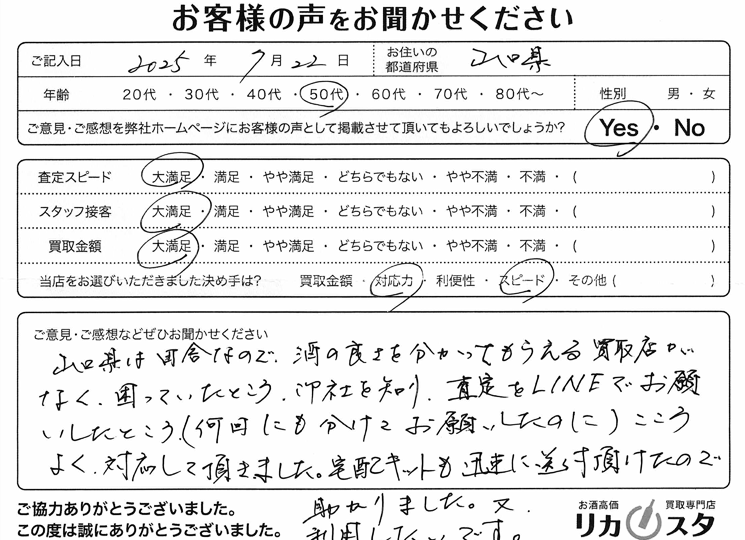 お客様の声をお聞かせください
ご記入日 2025 年 7月 22 日 お住いの都道府県 山口県
年齢 20代 ・ 30代 ・ 40代 ・ 50代 ・ 60代 ・ 70代 ・ 80代〜 性別 男 ・ 女
ご意見・ご感想を弊社ホームページにお客様の声として掲載させて頂いてもよろしいでしょうか? Yes ・ No
査定スピード 大満足 ・ 満足 ・ やや満足 ・ どちらでもない ・ やや不満 ・ 不満 ・ ( )
スタッフ接客 大満足 ・ 満足 ・ やや満足 ・ どちらでもない ・ やや不満 ・ 不満 ・ ( )
買取金額 大満足 ・ 満足 ・ やや満足 ・ どちらでもない ・ やや不満 ・ 不満 ・ ( )
当店をお選びいただきました決め手は? 買取金額 ・ 対応力 ・ 利便性 ・ スピード ・ その他 ( )
ご意見・ご感想などぜひお聞かせください
山口県は田舎なので、酒の良さを分かってもらえる買取店が
なく、困っていたところ、御社を知り、査定をLINEでお願
いしたところ、(何回にも分けてお願いしたのに)こころ
よく、対応して頂きました。宅配キットも迅速に送って頂けたので
助かりました。又、
利用したいです。
ご協力ありがとうございました。
この度は誠にありがとうございました。
お酒高価 買取専門店
リカスタ